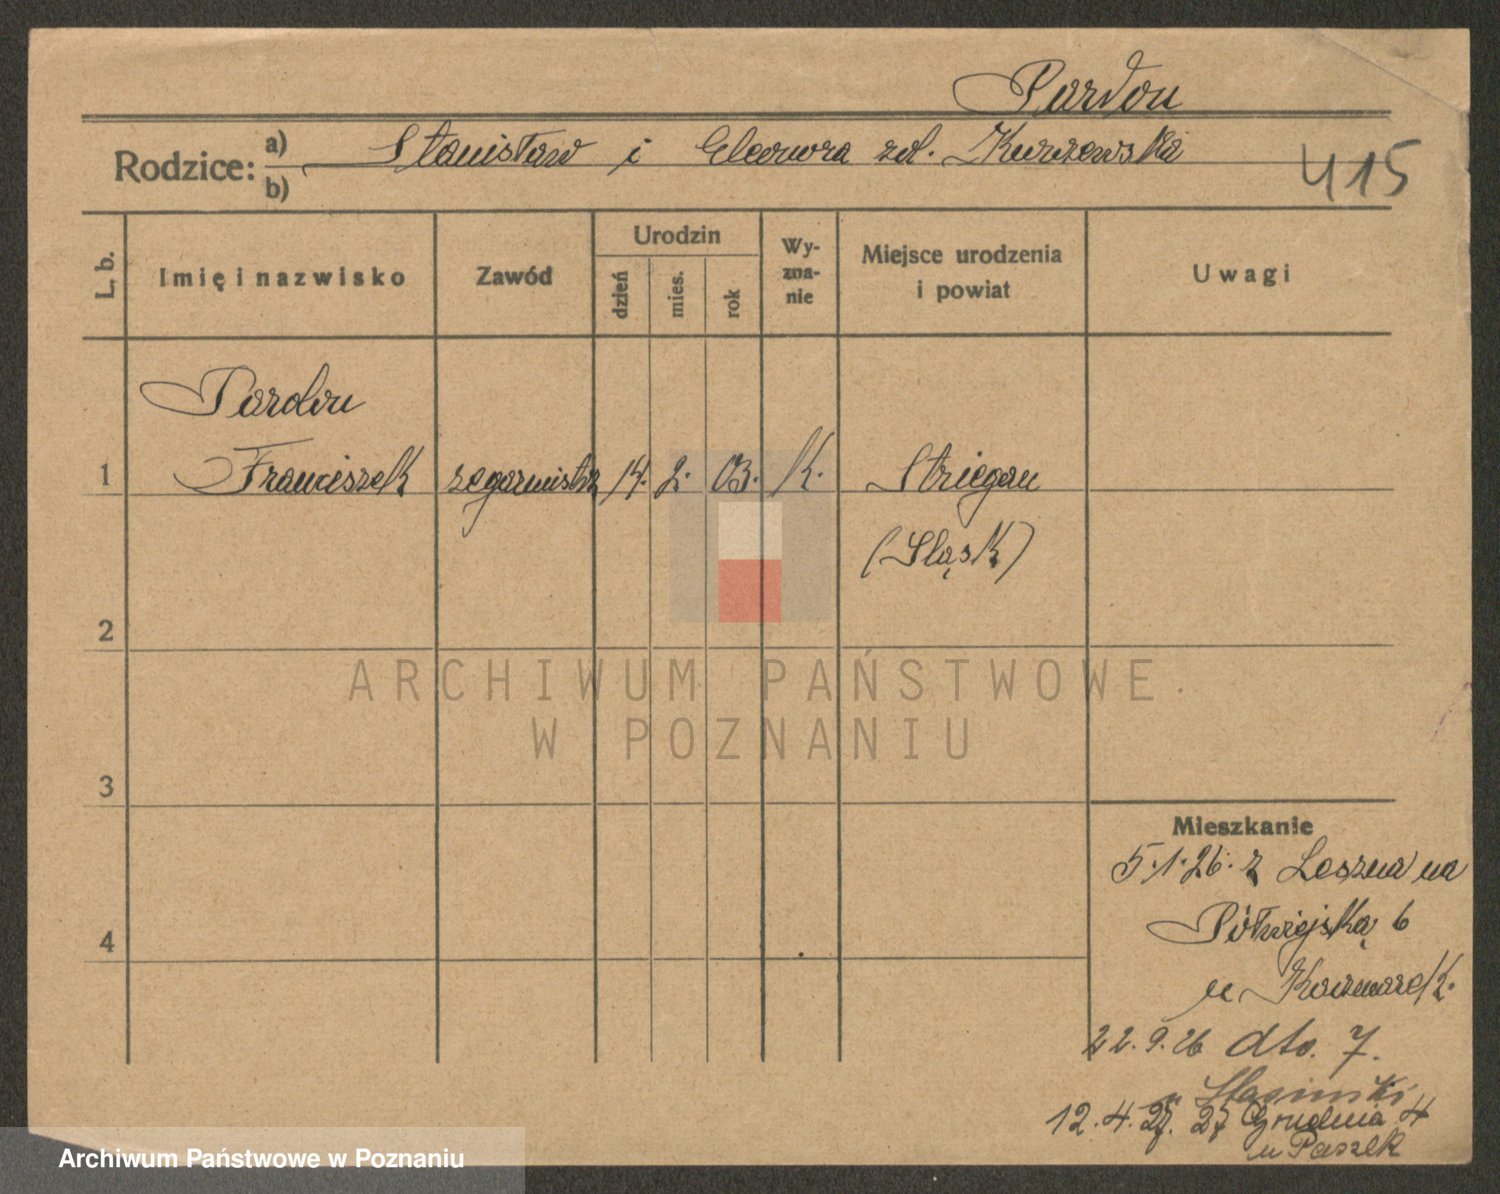 Pardon
Rodzice: a) Stanisław i Eleonora zd. Kurzewska
b)
415
L. b.
Imię i nazwisko
Zawód
Urodzin
dzień
mies.
rok
Wy-
zna-
nie
Miejsce urodzenia
i powiat
Uwagi
Pardon
1 Franciszek zegarmistrz 14. 2. 03. K. Striegau
(Śląsk)
2
3
4
Mieszkanie
5.1.26. z Leszna na
Półwiejską 6
u Kaczmarek.
22.9.26 dto. 7.
u
12.4.27. 27 Grudnia 4
u Paszek
ARCHIWUM PAŃSTWOWE
W POZNANIU
Archiwum Państwowe w Poznaniu